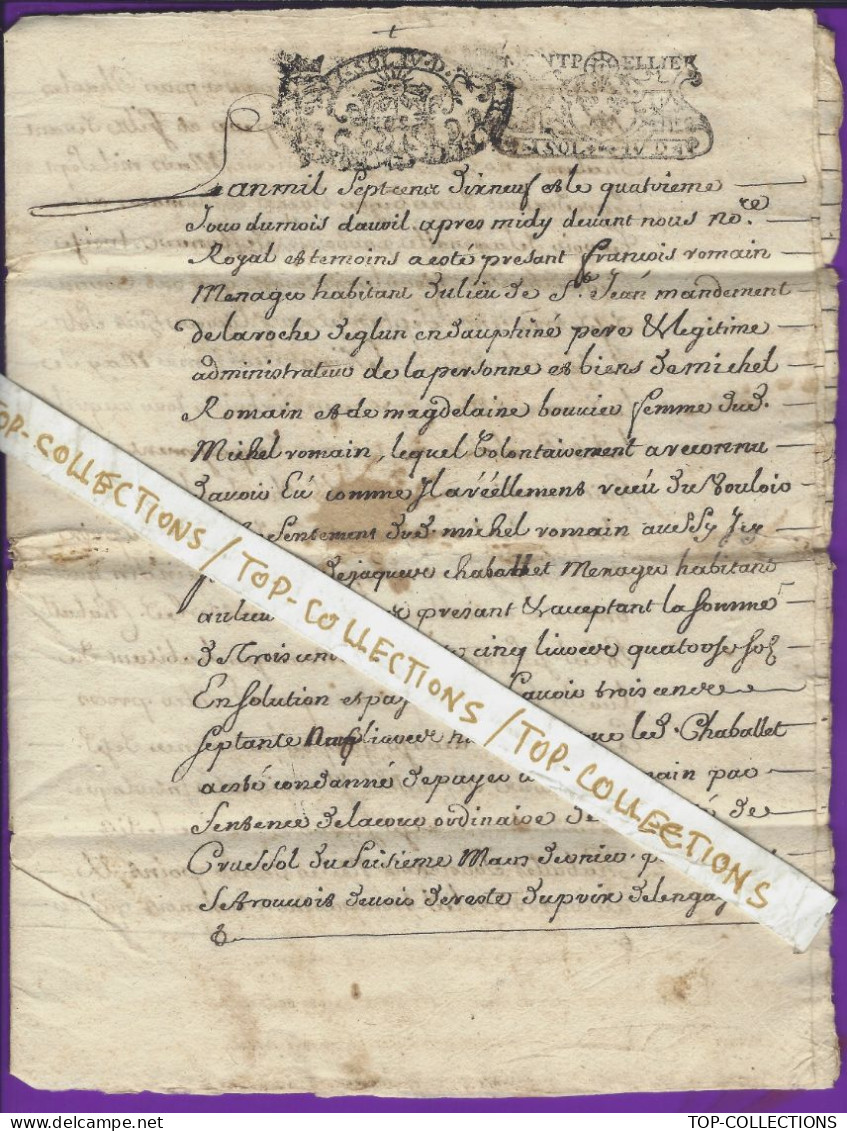 I·SOL·IV·D
MONTPELLIER
I SOL IV D
Lanmil Septcens dixneuf et le quatrieme
Jour dumois dauril apres midy devant nous no.re
Royal et temoins a esté presant françois romain
Menager habitant du lieu de St. Jean mandement
de la roche de glun en dauphiné pere & legitime
administrateur de la personne et biens de michel
Romain et de magdelaine bouvier femme dud.
Michel romain, lequel volontairement a reconnu
davoir Eu comme Il a réellement receu du vouloir
sentement dud. michel romain aussy Icy
de jaques chaballet Menager habitant
au lieu presant & acceptant la somme
de trois cens cinq livres quatorse solz
En solution et Savoir trois cens
septante neuf livres que led. Chaballet
a esté condanné de payer par
Sentence de la cour ordinaire de de
Crussol du seisieme Mars dernier
de reste du prix
TOP-COLLECTIONS / TOP-COLLECTIONS / TOP-COLLECTIONS
TOP-COLLECTIONS